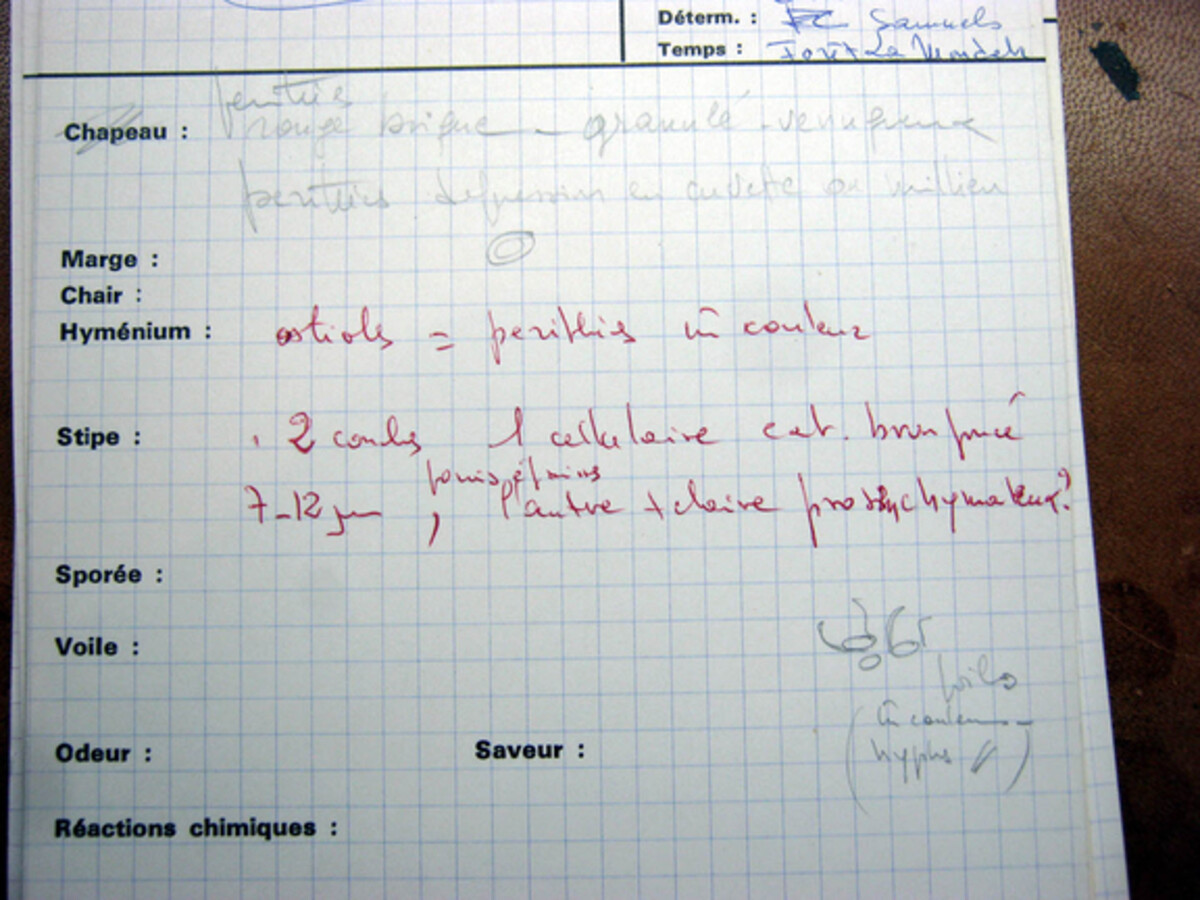 Déterm. : Samuels
Temps : Forêt La
périthés
Chapeau : rouge brique - granulé - verruqueux
périthés dépression en cuvette au milieu
Marge :
Chair :
Hyménium : ostiols = perithés m̄ couleur
Stipe : . 2 couches 1 cellulaire ext. brun foncé
parois épaisses
7-12 µm , l'autre + claire prosenchymateux?
Sporée :
Voile :
poils
(m̄ couleur
Odeur : Saveur :
hyphes //)
Réactions chimiques :